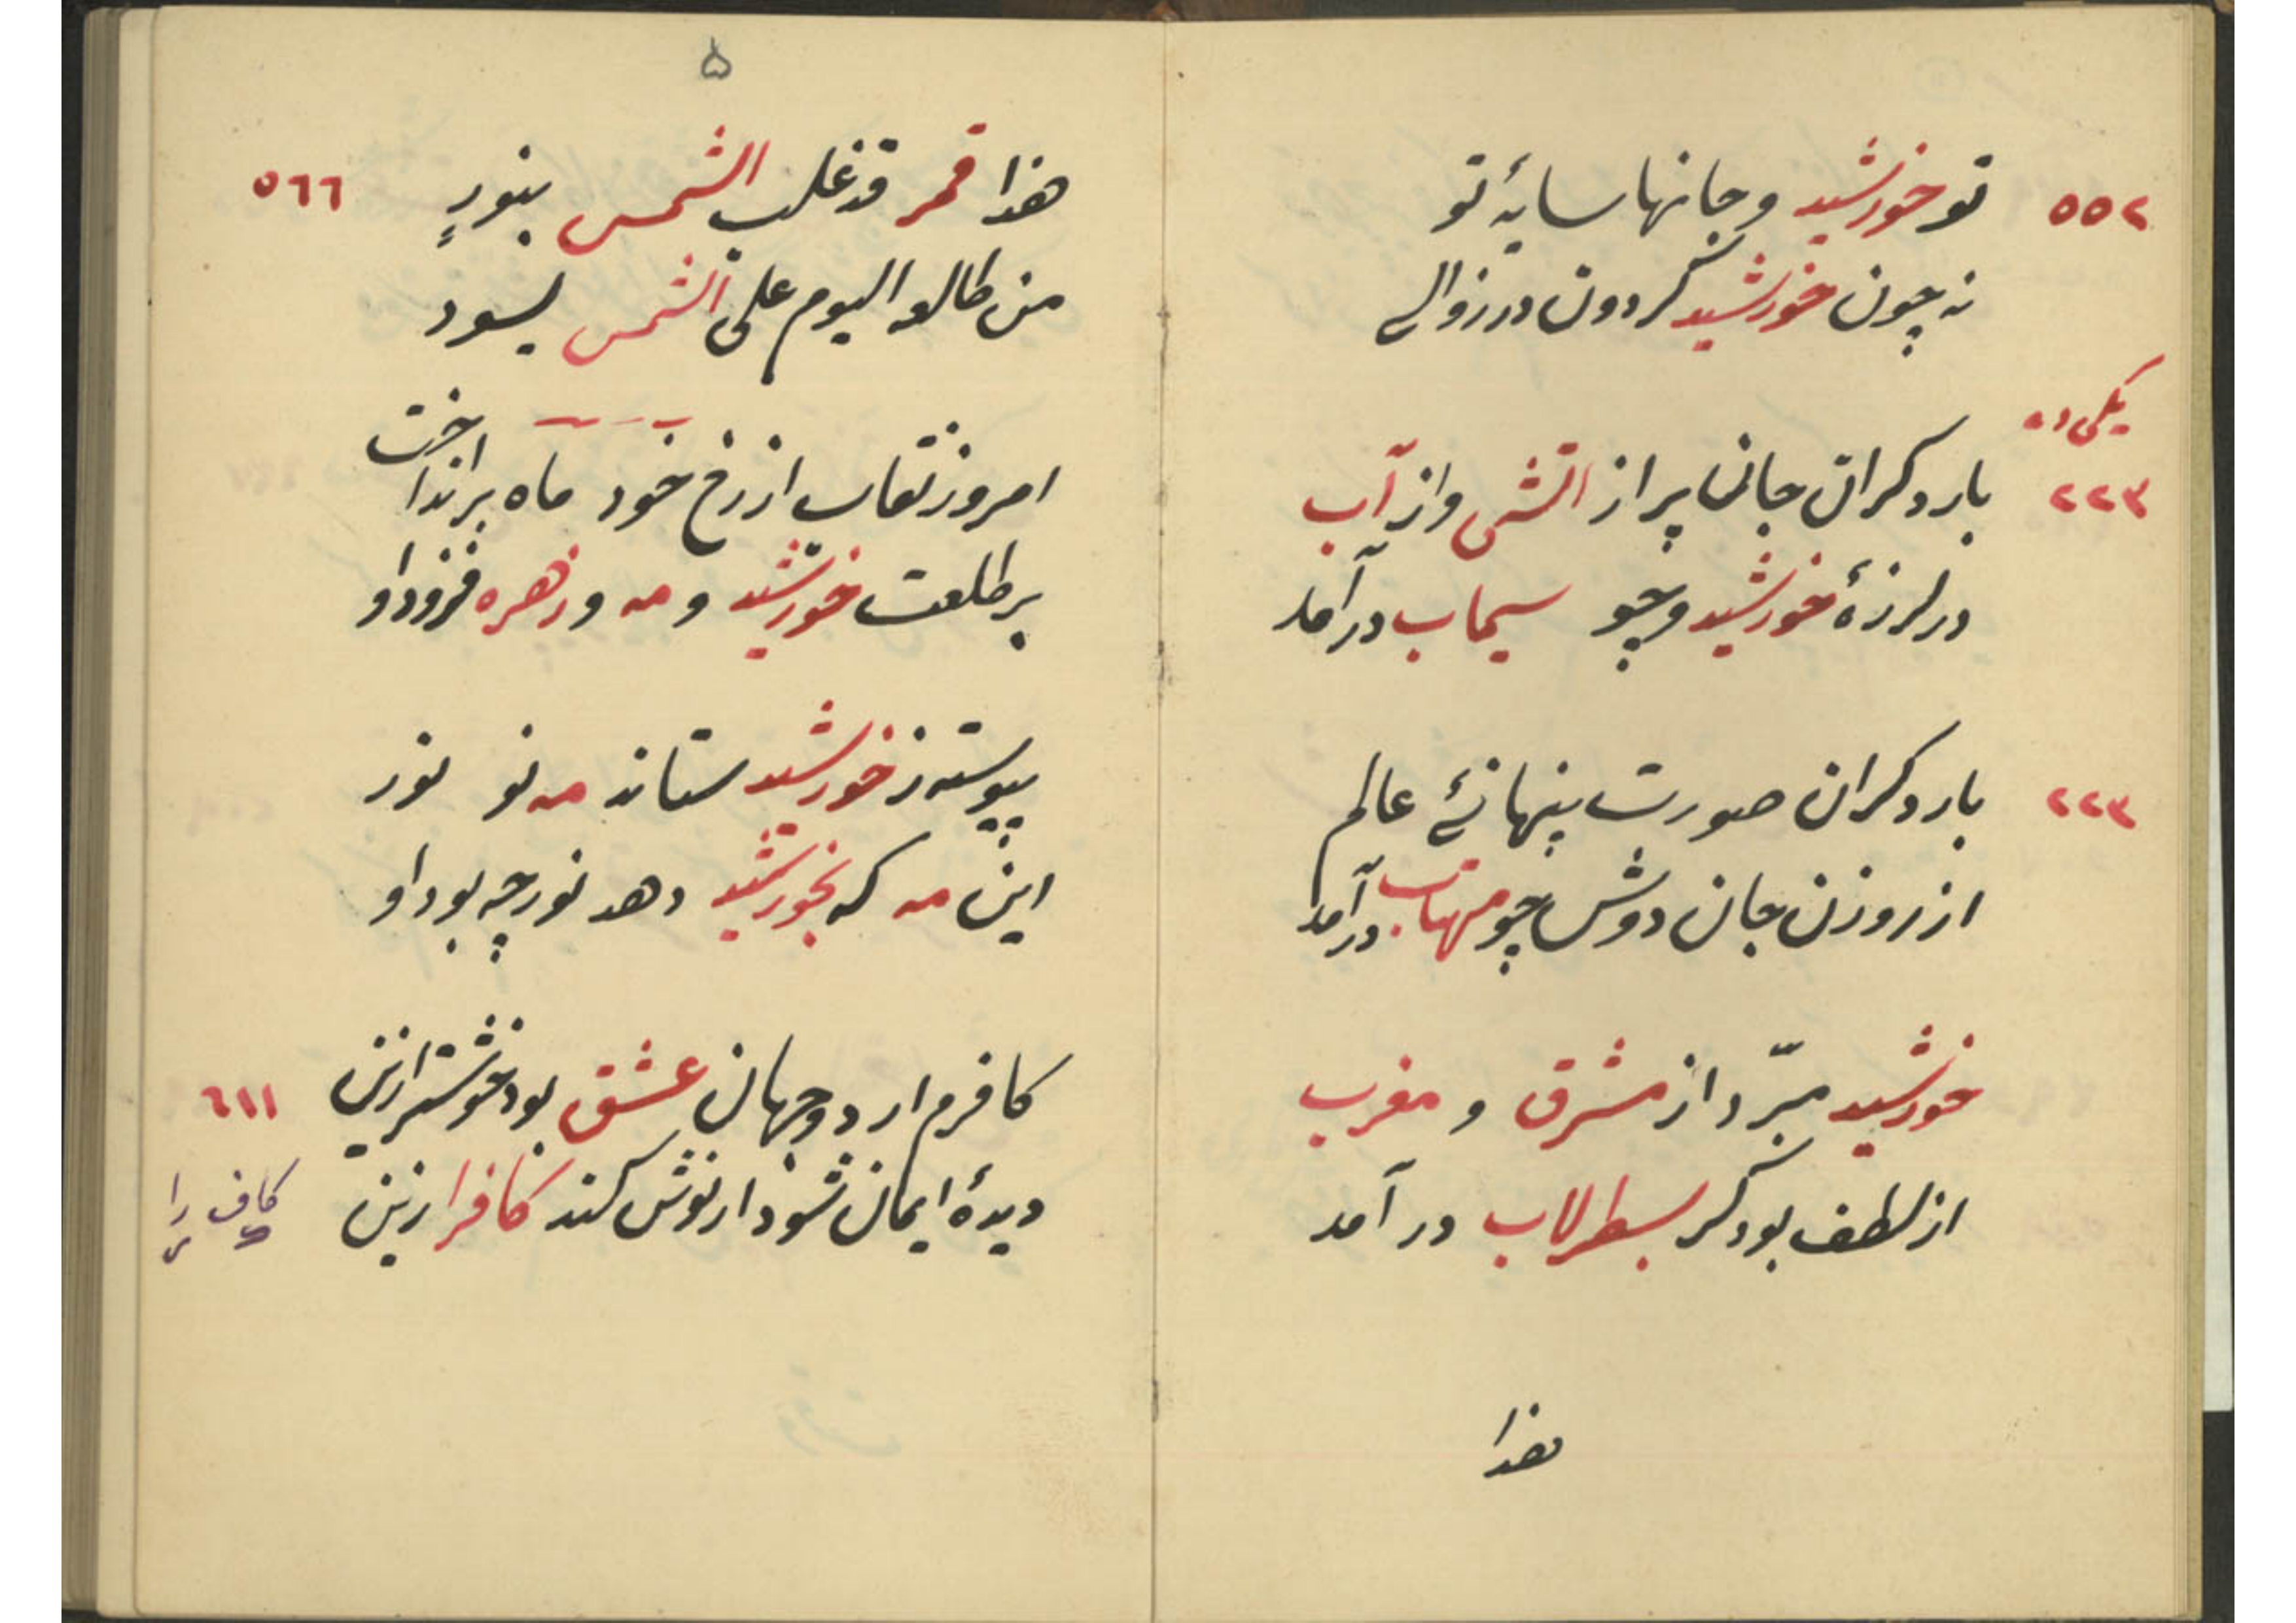 ٥٥٢
تو خورشید و جانها سایۀ تو
نه چون خورشید گردون در زوالی
٢٢٣
بار دگر ان جان پر از اتش و از آب
در لرزۀ خورشید و چو سیماب درآمد
٢٢٣
بار دگر ان صورت پنهانئ عالم
از روزن جان دوش چو مهتاب درآمد
خورشید مبرّد از مشرق و مغرب
از لطف بود گر بسطرلاب در آمد
هذا
٥
هذا قمر قد غلب الشمس بنورٍ
٥٦٦
من طالعه الیوم علی الشمس یسود
امروز نقاب از رخ خود ماه برانداخت
بر طلعت خورشید و مه و زهره فزود او
پیوسته ز خورشید ستاند مه نو نور
این مه که بخورشید دهد نور چه بود او
کافرم ار دو جهان عشق بود خوشتر ازین
٦١١
دیدۀ ایمان شود ار نوش کند کافر ازین